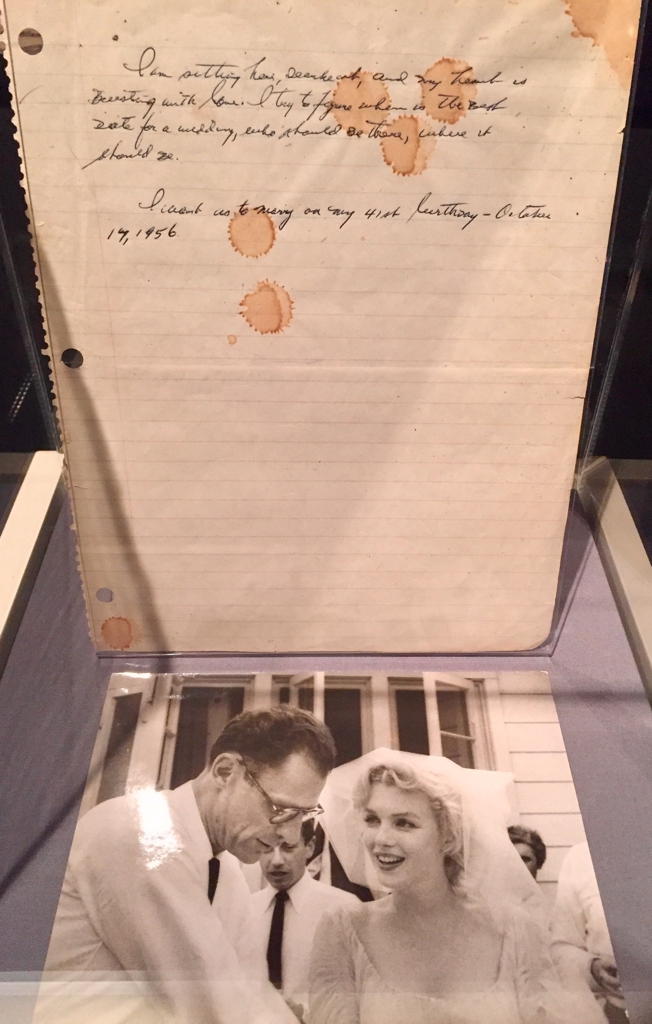 I am sitting here, Dearheart, and my heart is
Bursting with love. I try to figure when is the Best
Date for a wedding, who should be there, where it
should be.
I want us to marry on my 41st birthday – October
17, 1956